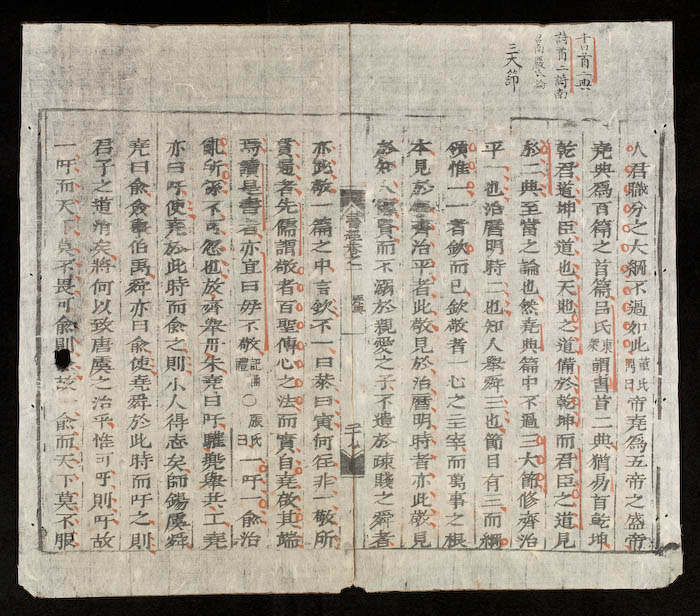 十口首二典
詩首二詩南
三大節
人君職分之大綱不過如此董氏鼎曰帝堯為五帝之盛帝
堯典為百篇之首篇呂氏東萊謂書首二典猶易首乾坤
乾君道坤臣道也天地之道備於乾坤而君臣之道見
於二典至當之論也然堯典篇中不過三大節修齊治
平一也治曆明時二也知人舉舜三也節目有三而綱
領惟一一者欽而已欽敬者一心之主宰而萬事之根
本見於修齊治平者此敬見於治曆明時者亦此敬見
於知人而不溺於親愛之子不遺於疎賤之舜者
書經卷之一
堯典
亦此敬一篇之中言欽不一曰恭曰寅何往非一敬所
貫通者先儒謂敬者百聖傳心之法而實自堯啟其端
焉讀是書者亦宜曰毋不敬記禮〇嚴氏曰一吁一俞治
亂所係不可忽也放齊舉丹朱堯曰吁驩兜舉共工堯
亦曰吁使堯於此時而俞之則小人得志矣師錫虞舜
堯曰俞僉舉伯禹舜亦曰俞使堯舜於此時而吁之則
君子之道消矣將何以致唐虞之治乎惟可吁則吁故
一吁而天下莫不畏可俞則俞故一俞而天下莫不服